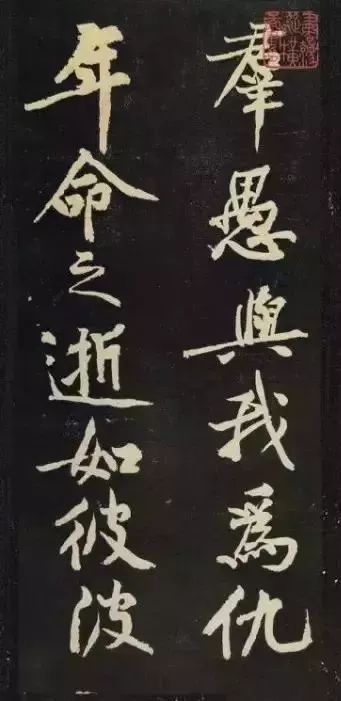 羣愚與我為仇
年命之逝如彼波